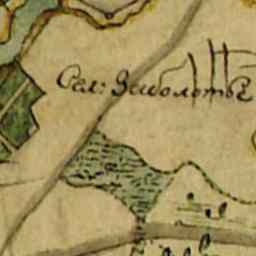 Сел: Заболотье